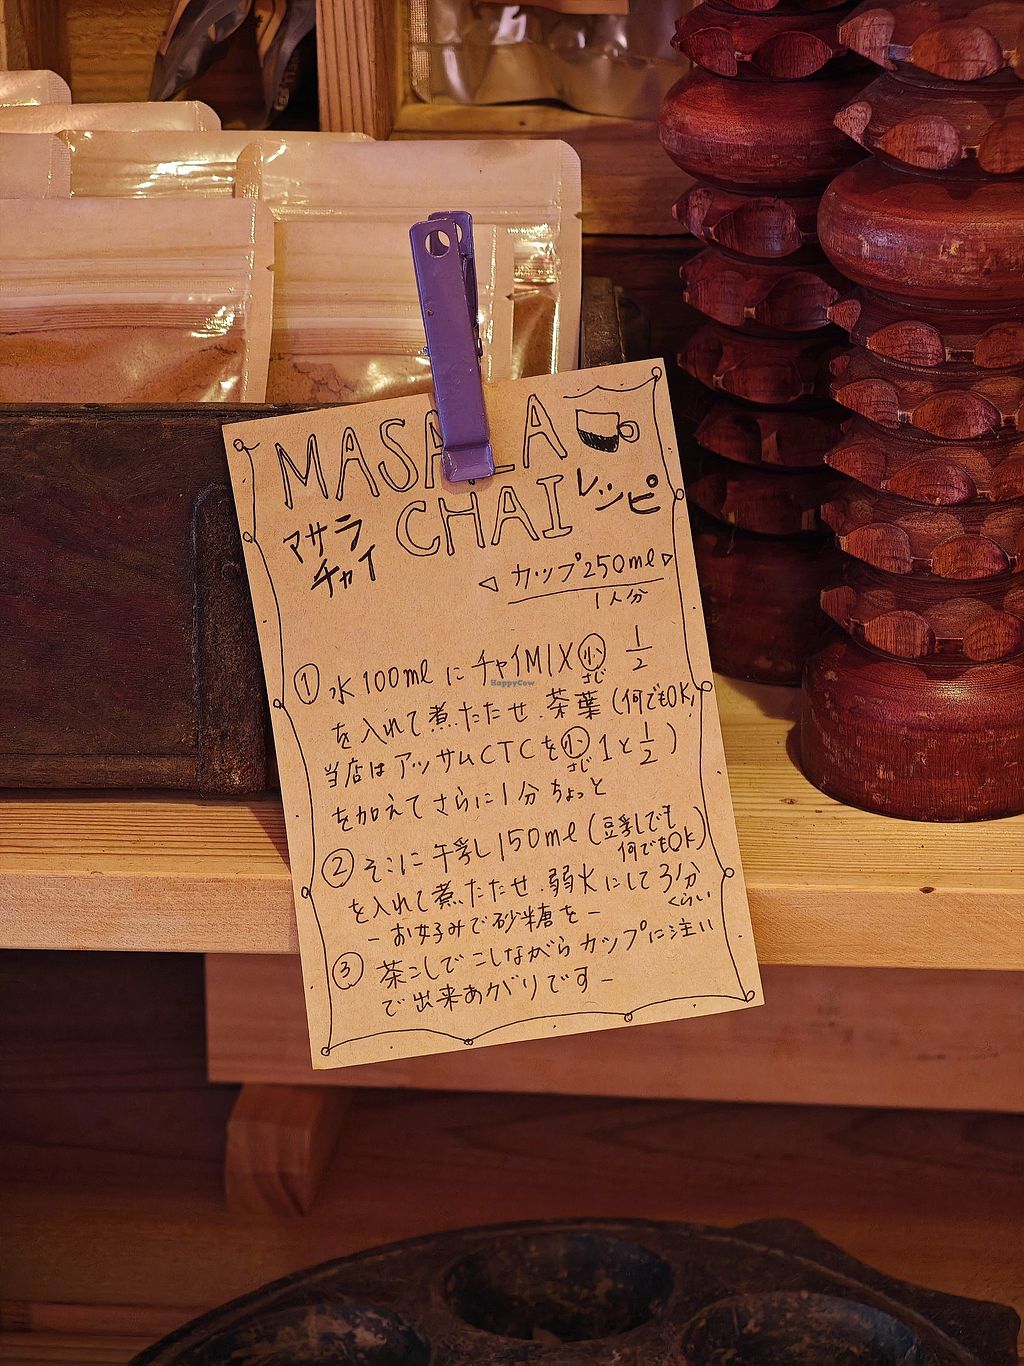 MASALA
CHAI レシピ
マサラ
チャイ
◁ カップ250ml ▷
1人分
① 水100ml に チャイMIX 小さじ 1/2
を入れて煮たたせ、茶葉(何でもOK)
当店はアッサムCTCを小さじ 1と1/2)
を加えてさらに1分ちょっと
② そこに牛乳150ml(豆乳でも何でもOK)
を入れて煮たたせ、弱火にして3分くらい
-お好みで砂糖を-
③ 茶こしでこしながらカップに注い
で出来あがりです-
HappyCow